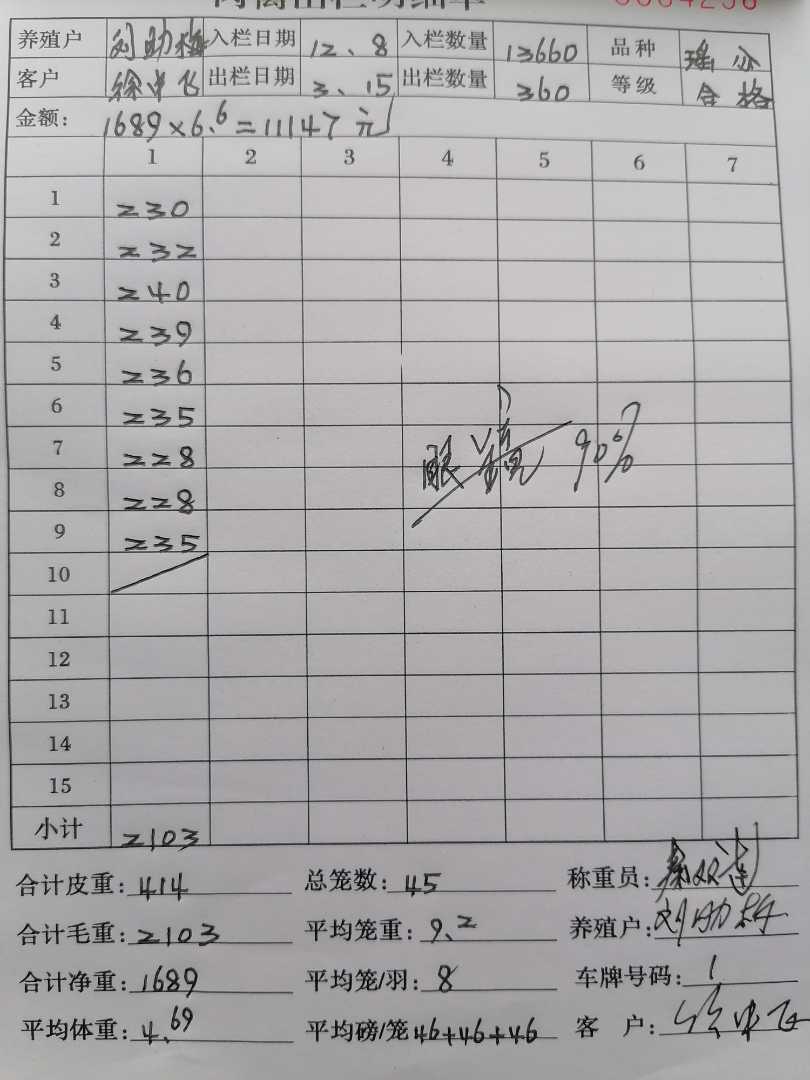 肉禽出栏明细单 0004256
养殖户 刘助梅 入栏日期 12、8 入栏数量 13660 品种 瑶 亦
客户 徐中飞 出栏日期 3、15 出栏数量 360 等级 合格
金额: 1689×6.6=11147元
1 2 3 4 5 6 7
1 230
2 232
3 240
4 239
5 236
6 235
7 228
8 228
9 235
眼镜 90%
10
11
12
13
14
15
小计 2103
合计皮重: 414 总笼数: 45 称重员:
合计毛重: 2103 平均笼重: 9.2 养殖户: 刘助梅
合计净重: 1689 平均笼/羽: 8 车牌号码: 1
平均体重: 4.69 平均磅/笼 46+46+46 客 户: 徐中飞